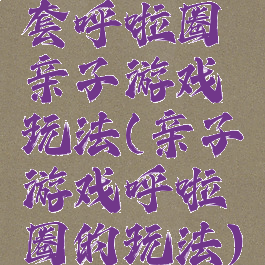 套呼啦圈
亲子游戏
玩法(亲子
游戏呼啦
圈的玩法)